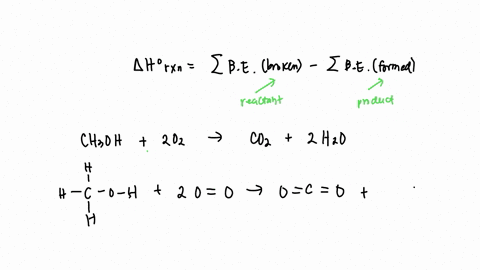 ΔH°rxn = ∑ B.E. (broken) − ∑ B.E. (formed)
reactant product
CH3OH + 2O2 → CO2 + 2H2O
H
H − C − O − H + 2 O = O → O = C = O +
H